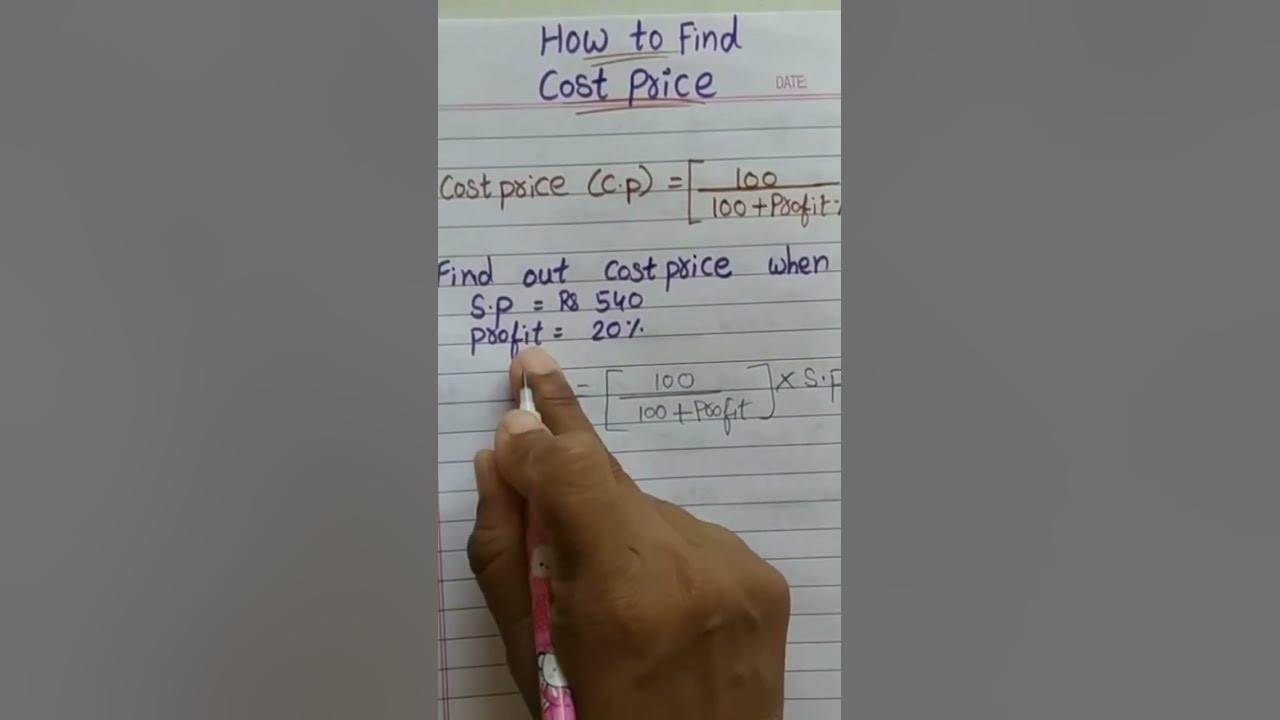 How to Find
Cost price
DATE:
Cost price (C.p) = [100 / 100 + Profit %
Find out cost price when
S.p = Rs 540
profit = 20%
= [100 / 100 + Profit] × S.p